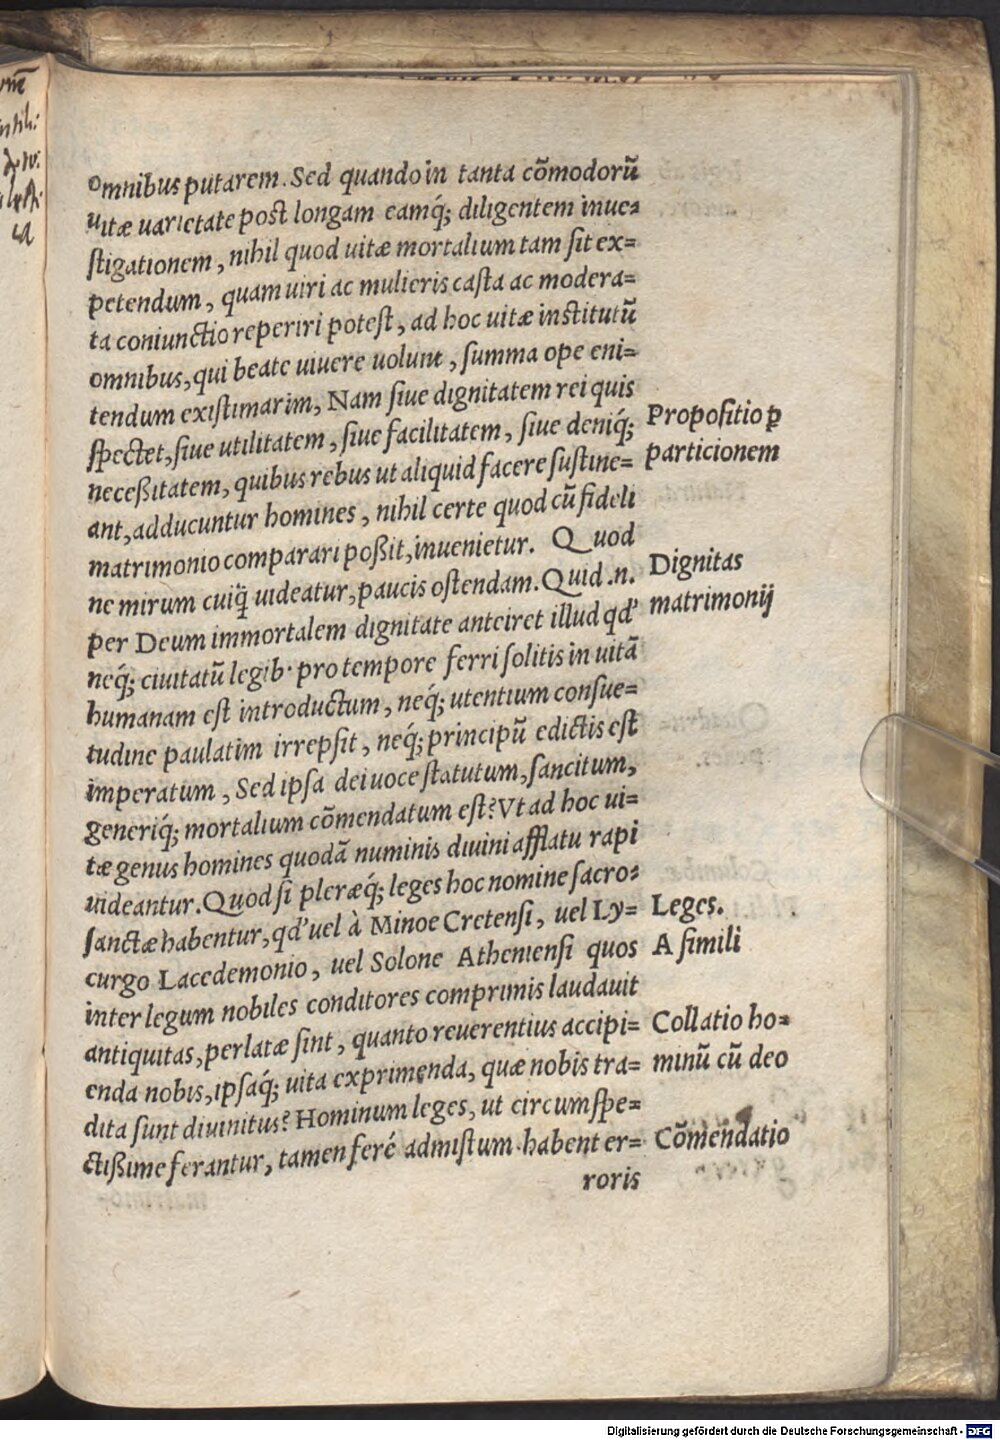 omnibus putarem. Sed quando in tanta cõmodorũ
uitæ uarietate post longam eamq́; diligentem inue-
stigationem, nihil quod uitæ mortalium tam sit ex-
petendum, quam uiri ac mulieris casta ac modera-
ta coniunctio reperiri potest, ad hoc uitæ institutũ
omnibus, qui beate uiuere uolunt, summa ope eni-
tendum existimarim, Nam siue dignitatem rei quis
spectet, siue utilitatem, siue facilitatem, siue deniq́;
neceßitatem, quibus rebus ut aliquid facere sustine-
ant, adducuntur homines, nihil certe quod cũ fideli
matrimonio comparari poßit, inuenietur. Quod
ne mirum cuiq̃ uideatur, paucis ostendam. Quid .n.
per Deum immortalem dignitate anteiret illud qd'
neq́; ciuitatũ legib· pro tempore ferri solitis in uitã
humanam est introductum, neq́; utentium consue-
tudine paulatim irrepsit, neq́; principũ edictis est
imperatum, Sed ipsa dei uoce statutum, sancitum,
generiq́; mortalium cõmendatum est? Vt ad hoc ui-
tæ genus homines quodã numinis diuini afflatu rapi
uideantur. Quod si pleræq́; leges hoc nomine sacro-
sanctæ habentur, qd' uel à Minoe Cretensi, uel Ly-
curgo Lacedemonio, uel Solone Atheniensi quos
inter legum nobiles conditores comprimis laudauit
antiquitas, perlatæ sint, quanto reuerentius accipi-
enda nobis, ipsaq́; uita exprimenda, quæ nobis tra-
dita sunt diuinitus? Hominum leges, ut circumspe-
ctißime ferantur, tamen ferè admistum habent er-
roris
Propositio ꝑ
particionem
Dignitas
matrimonij
Leges.
A simili
Collatio ho-
minũ cũ deo
Cõmendatio
Digitalisierung gefördert durch die Deutsche Forschungsgemeinschaft - DFG